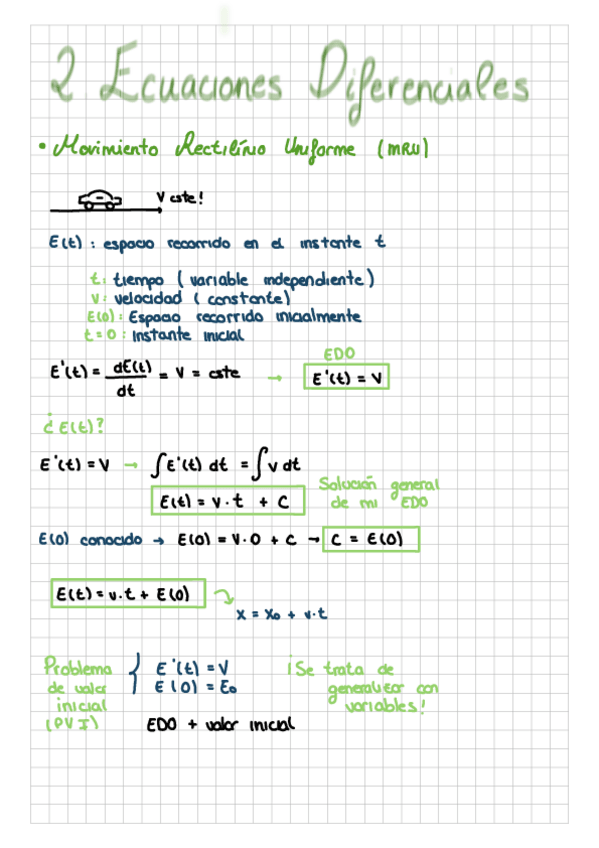 2 Ecuaciones Diferenciales
• Movimiento Rectilíneo Uniforme (MRU)
V cste!
E(t) : espacio recorrido en el instante t
t: tiempo ( variable independiente )
V: velocidad ( constante)
E(0): Espacio recorrido inicialmente
t=0: Instante inicial
E'(t) = dE(t)/dt = V = cste →
EDO
E'(t) = V
¿ E(t)?
E'(t) = V → ∫E'(t) dt = ∫v dt
E(t) = v·t + C
Solución general
de mi EDO
E(0) conocido → E(0) = V·0 + C → C = E(0)
E(t) = v·t + E(0)
x = x₀ + v·t
Problema
de valor
inicial
(PVI)
{ E'(t) = V
E(0) = E₀
¡Se trata de
generalizar con
variables!
EDO + valor inicial